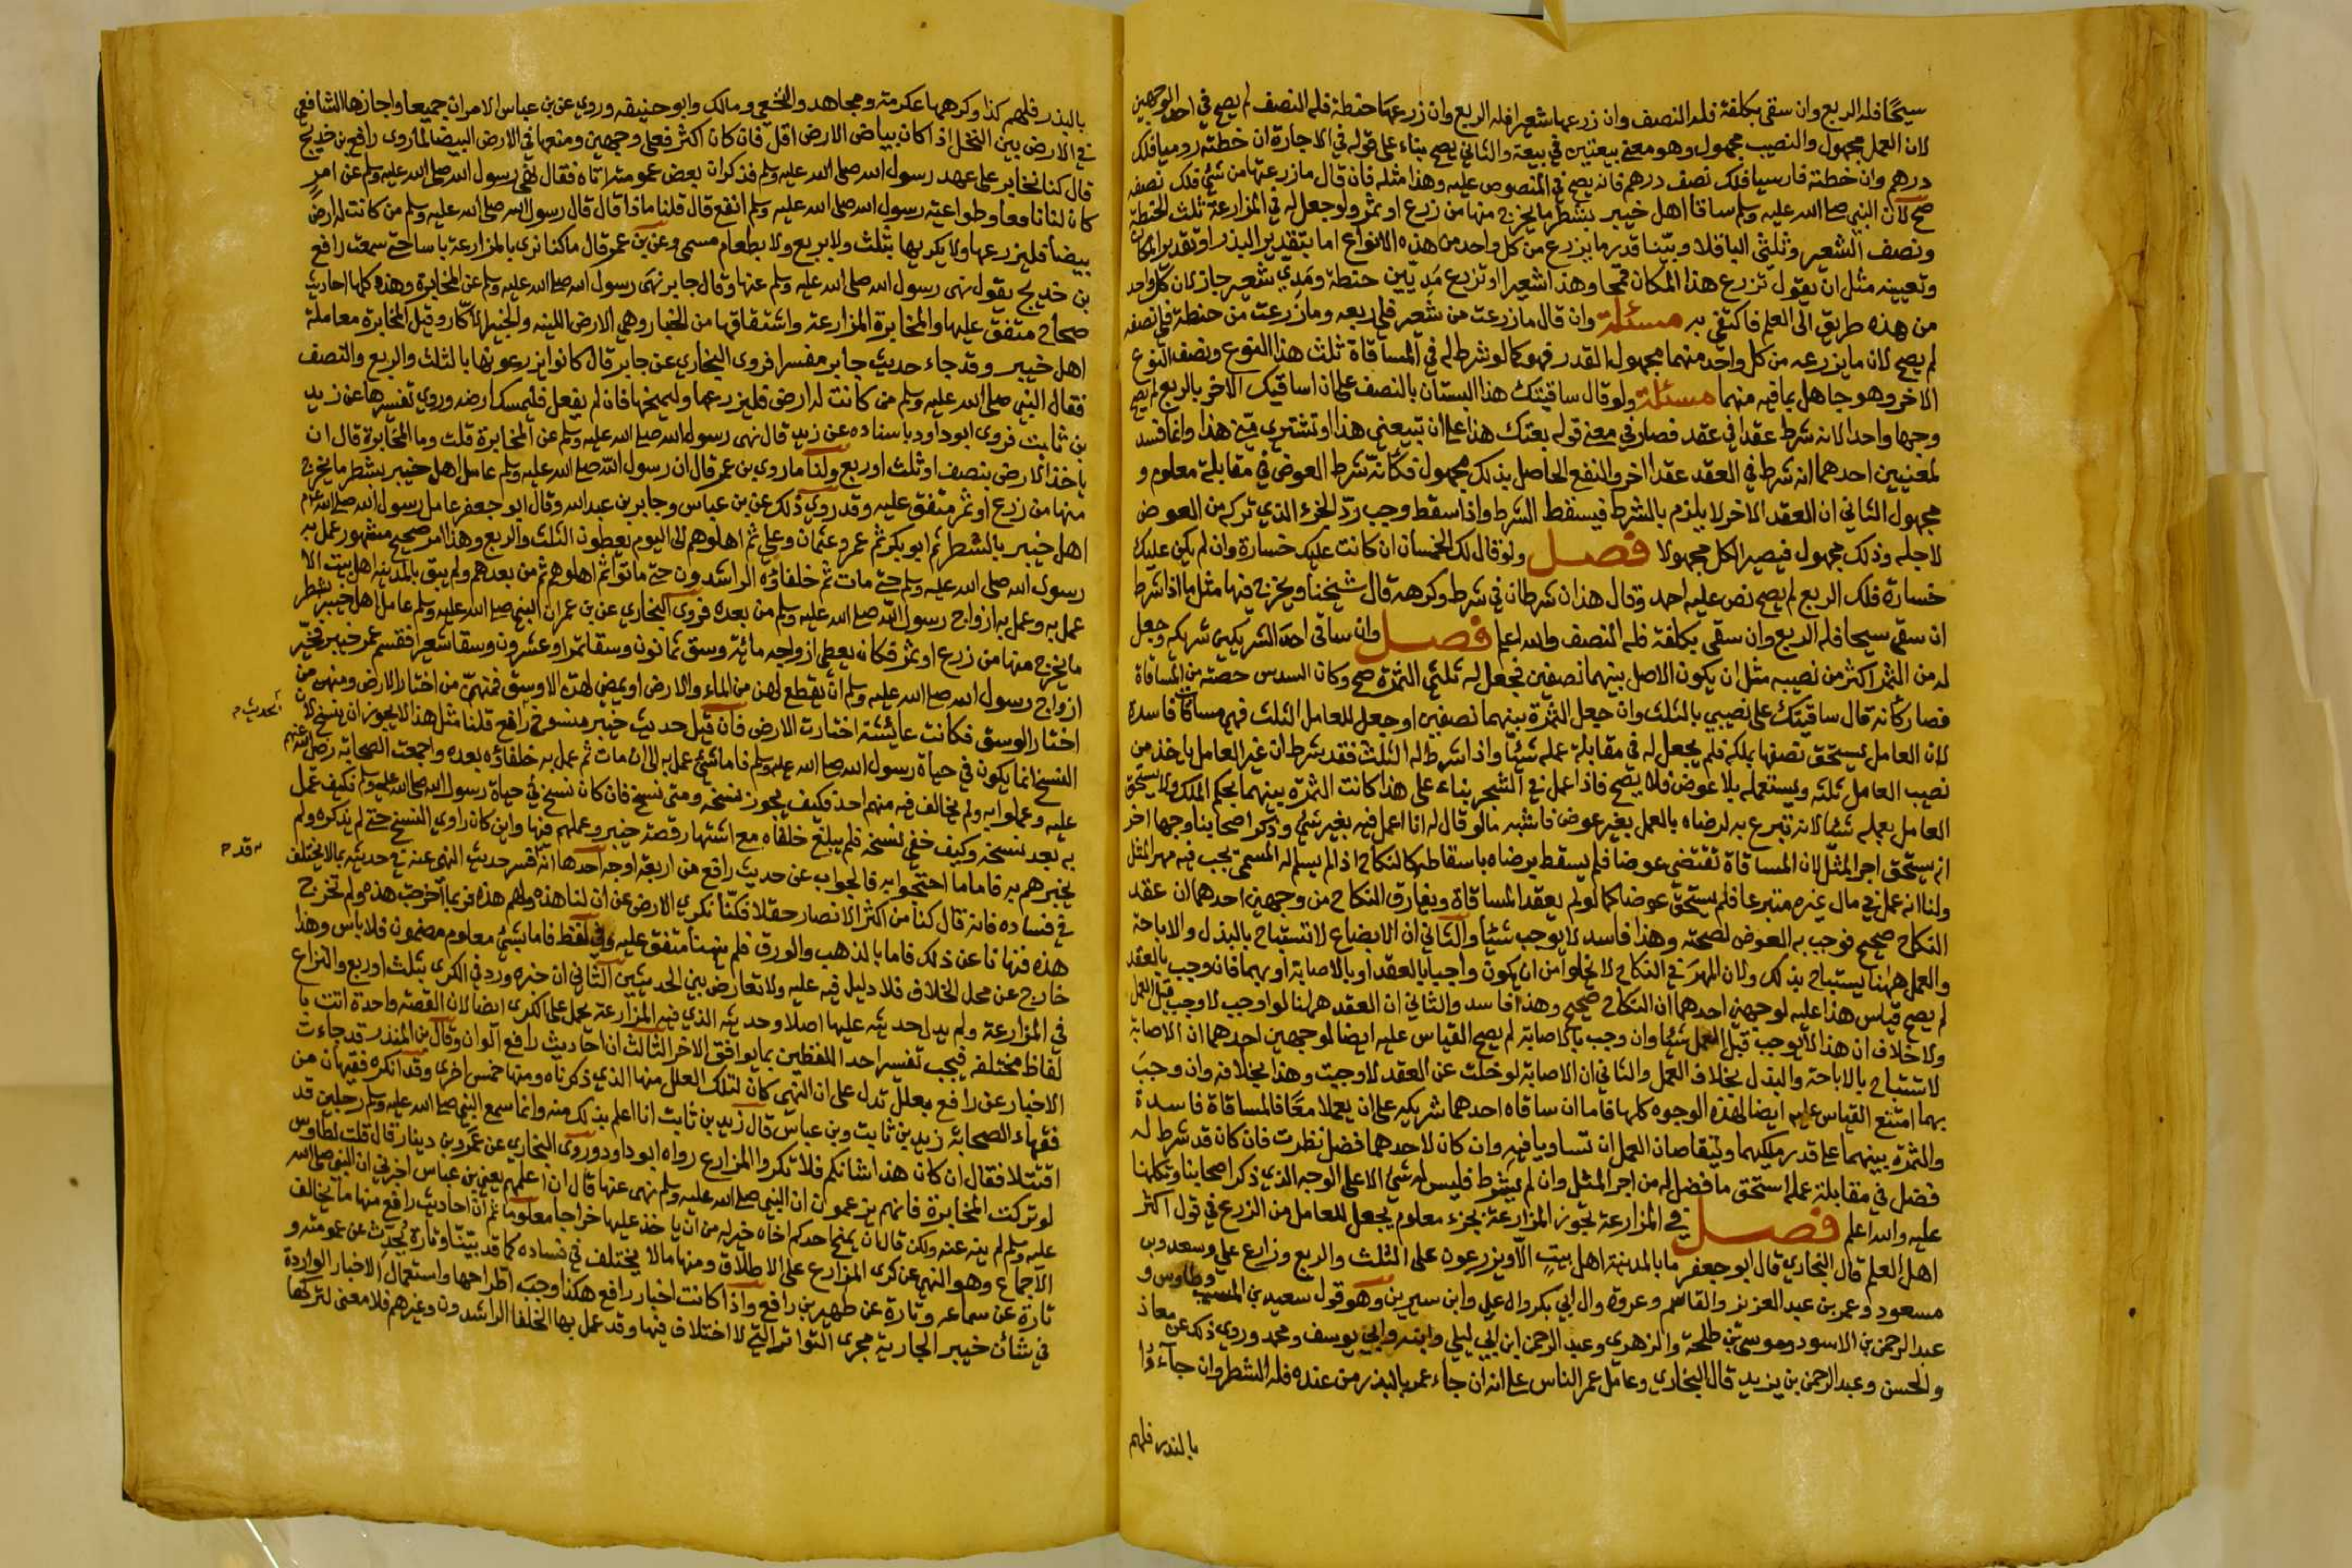 سيحًا فله الربع وان سقى بكلفة فله النصف وان زرعها شعيرا فله الربع وان زرعها حنطة فله النصف لم يصح في احد الوجهين
لان العمل مجهول والنصيب مجهول وهو معنى بيعتين في بيعة والثاني يصح بناء على قوله في الاجارة ان خطته روميا فلك
درهم وان خطته فارسيا فلك نصف درهم فانه يصح في المنصوص عليه وهذا مثله فان قال ما زرعتها من شئ فلك نصفه
صح لان النبي صلى الله عليه وسلم ساقا اهل خيبر بشطر ما يخرج منها من زرع او ثمر ولو جعل له في المزارعة ثلث الحنطة
ونصف الشعير وثلثي الباقلا وبيّنا قدر ما يزرع من كل واحد من هذه الانواع اما بتقدير البذر او تقدير المكان
وتعيينه مثل ان يقول تزرع هذا المكان قمحا وهذا شعيرا او تزرع مدّيين حنطة ومدي شعير جاز لان كل واحد
من هذه طريق الى العلم فاكتفى به مسئلة وان قال ما زرعت من شعير فلي ربعه وما زرعت من حنطة فلي نصفه
لم يصح لان ما يزرعه من كل واحد منهما مجهول القدر فهو كما لو شرط له في المساقاة ثلث هذا النوع ونصف النوع
الاخر وهو جاهل بما فيه منهما مسئلة ولو قال ساقيتك هذا البستان بالنصف على ان اساقيك الاخر بالربع لم يصح
وجها واحدا لانه شرط عقدا في عقد فصار في معنى قوله بعتك هذا على ان تبيعني هذا او تشتري مني هذا وانما فسد
لمعنيين احدهما انه شرط في العقد عقدا اخر والنفع الحاصل بذلك مجهول فكأنه شرط العوض في مقابلة معلوم و
مجهول الثاني ان العقد الاخر لا يلزم بالشرط فيسقط الشرط واذا سقط وجب ردّ الجزء الذي تركه من العوض
لاجله وذلك مجهول فيصير الكل مجهولا فصل ولو قال لك الخمسان ان كانت عليك خسارة وان لم يكن عليك
خسارة فلك الربع لم يصح نص عليه احمد وقال هذان شرطان في شرط وكرهه قال شيخنا ويخرج فيها مثل ما اذا شرط
ان سقى سيحا فله الربع وان سقى بكلفة فله النصف والله اعلم فصل وان ساقى احد الشريكين شريكه وجعل
له من الثمر اكثر من نصيبه مثل ان يكون الاصل بينهما نصفين فجعل له ثلثي الثمرة صح وكان السدس حصته من المساقاة
فصار كانه قال ساقيتك على نصيبي بالثلث وان جعل الثمرة بينهما نصفين او جعل للعامل الثلث فهي مساقاة فاسدة
لان العامل يستحق نصفها بملكه فلم يجعل له في مقابلة عمله شيئا واذا شرط له الثلث فقد شرط ان غير العامل ياخذ من
نصيب العامل ثلثه ويستعمله بلا عوض فلا يصح فاذا عمل في الشجر بناء على هذا كانت الثمرة بينهما بحكم الملك ولا يستحق
العامل بعمله شيئا لانه تبرع به لرضاه بالعمل بغير عوض فاشبه ما لو قال له انا اعمل فيه بغير شئ وذكر اصحابنا وجها اخر
انه يستحق اجر المثل لان المساقاة تقتضي عوضا فلم يسقط برضاه باسقاطه كالنكاح اذا لم يسلم له المسمى يجب فيه مهر المثل
ولنا انه عمل في مال غيره متبرعا فلم يستحق عوضا كما لو لم يعقد المساقاة ويفارق النكاح من وجهين احدهما ان عقد
النكاح صحيح فوجب به العوض لصحته وهذا فاسد لا يوجب شيئا والثاني ان الابضاع لا تستباح بالبذل والاباحة
والعمل ههنا يستباح بذلك ولان المهر في النكاح لا يخلوا من ان يكون واجبا بالعقد او بالاصابة او بهما فان وجب بالعقد
لم يصح قياس هذا عليه لوجهين احدهما ان النكاح صحيح وهذا فاسد والثاني ان العقد ههنا لو اوجب لاوجب قبل العمل
ولا خلاف ان هذا لا يوجب قبل العمل شيئا وان وجب بالاصابة لم يصح القياس عليه ايضا لوجهين احدهما ان الاصابة
لا تستباح بالاباحة والبذل بخلاف العمل والثاني ان الاصابة لو خلت عن العقد لاوجبت وهذا بخلافه وان وجب
بهما امتنع القياس عليه ايضا لهذه الوجوه كلها فاما ان ساقاه احدهما شريكه على ان يعملا معًا فالمساقاة فاسدة
والثمرة بينهما على قدر ملكيهما ويتقاصان العمل ان تساويا فيه وان كان لاحدهما فضل نظرت فان كان قد شرط له
فضل في مقابلة عمله استحق ما فضل له من اجر المثل وان لم يشرط فليس له شئ الا على الوجه الذي ذكر اصحابنا وتكلمنا
عليه والله اعلم فصل في المزارعة تجوز المزارعة بجزء معلوم يجعل للعامل من الزرع في قول اكثر
اهل العلم قال البخاري قال ابو جعفر ما بالمدينة اهل بيت الا ويزرعون على الثلث والربع وزارع علي وسعد وبن
مسعود وعمر بن عبد العزيز والقاسم وعروة وال ابي بكر وال علي وابن سيرين وهو قول سعيد بن المسيب وطاوس و
عبد الرحمن بن الاسود وموسى بن طلحة والزهري وعبد الرحمن ابن ابي ليلى وابنه وابي يوسف ومحمد وروي ذلك عن معاذ
والحسن وعبد الرحمن بن يزيد قال البخاري وعامل عمر الناس على انه ان جاء عمر بالبذر من عنده فله الشطر وان جاءوا
بالبذر فلهم
بالبذر فلهم كذا وكرهها عكرمة ومجاهد والنخعي ومالك وابو حنيفه وروي عن بن عباس الامران جميعا واجازها الشافعي
في الارض بين النخل اذا كان بياض الارض اقل فان كان اكثر فعلى وجهين ومنعها في الارض البيضا لما روى رافع بن خديج
قال كنا نخابر على عهد رسول الله صلى الله عليه وسلم فذكر ان بعض عمومته اتاه فقال نهى رسول الله صلى الله عليه وسلم عن امرٍ
كان لنا نافعا وطواعية رسول الله صلى الله عليه وسلم انفع قال قلنا ماذا قال قال رسول الله صلى الله عليه وسلم من كانت له ارض
بيضا فليزرعها ولا يكريها بثلث ولا بربع ولا بطعام مسمى وعن بن عمر قال ما كنا نرى بالمزارعة باسا حتى سمعت رافع
بن خديج يقول نهى رسول الله صلى الله عليه وسلم عنها وقال جابر نهى رسول الله صلى الله عليه وسلم عن المخابرة وهذه كلها احاديث
صحاح متفق عليها والمخابرة المزارعة واشتقاقها من الخبار وهي الارض اللينه والخبير الاكّار وقيل المخابرة معاملة
اهل خيبر وقد جاء حديث جابر مفسرا فروى البخاري عن جابر قال كانوا يزرعونها بالثلث والربع والنصف
فقال النبي صلى الله عليه وسلم من كانت له ارض فليزرعها وليمنحها فان لم يفعل فليمسك ارضه وروي تفسيرها عن زيد
بن ثابت فروى ابو داود باسناده عن زيد قال نهى رسول الله صلى الله عليه وسلم عن المخابرة قلت وما المخابرة قال ان
ياخذ الارض بنصف او ثلث او ربع ولنا ما روى بن عمر قال ان رسول الله صلى الله عليه وسلم عامل اهل خيبر بشطر ما يخرج
منها من زرع او ثمر متفق عليه وقد روي ذلك عن بن عباس وجابر بن عبد الله وقال ابو جعفر عامل رسول الله صلى الله عليه وسلم
اهل خيبر بالشطر ثم ابو بكر ثم عمر وعثمان وعلي ثم اهلوهم الى اليوم يعطون الثلث والربع وهذا امر صحيح مشهور عمل به
رسول الله صلى الله عليه وسلم حتى مات ثم خلفاؤه الراشدون حتى ماتوا ثم اهلوهم ثم من بعدهم ولم يبق بالمدينه اهل بيت الا
عمل به وعمل به ازواج رسول الله صلى الله عليه وسلم من بعده فروى البخاري عن بن عمر ان النبي صلى الله عليه وسلم عامل اهل خيبر بشطر
ما يخرج منها من زرع او ثمر فكان يعطي ازواجه مائة وسق ثمانون وسقا تمرا وعشرون وسقا شعيرا فقسم عمر خيبر فخيّر
ازواج رسول الله صلى الله عليه وسلم ان يقطع لهن من الماء والارض او يمضي لهن الاوسق فمنهن من اختار الارض ومنهن من
اختار الوسق فكانت عائشة اختارت الارض فان قيل حديث خيبر منسوخ رافع قلنا مثل هذا لا يجوز ان ينسخ لان
بحديث م
النسخ انما يكون في حياة رسول الله صلى الله عليه وسلم فاما شئ عمل به الى ان مات ثم عمل به خلفاؤه بعده واجمعت الصحابة رضي الله عنهم
عليه وعملوا به ولم يخالف فيه منهم احد فكيف يجوز نسخه ومتى نسخ فان كان نسخ في حياة رسول الله صلى الله عليه وسلم فكيف عمل
به بعد نسخه وكيف خفي نسخه فلم يبلغ خلفاه مع اشتهار قصة خيبر وعملهم فيها واين كان راوي النسخ حتى لم يذكره ولم
يخبرهم به فاما ما احتجوا به فالجواب عن حديث رافع من اربعة اوجه احدها انه فسر حديث النهي عنه في حديثه بما لا يختلف
قد م
في فساده فانه قال كنا من اكثر الانصار حقلا فكنا نكري الارض عن ان لنا هذه ولهم هذه فربما اخرجت هذه ولم تخرج
هذه فنهانا عن ذلك فاما بالذهب والورق فلم ينهنا متفق عليه وفي لفظ فاما بشئ معلوم مضمون فلا باس وهذا
خارج عن محل الخلاف فلا دليل فيه عليه ولا تعارض بين الحديثين الثاني ان خبره ورد في الكرى بثلث او ربع والنزاع
في المزارعة ولم يدل حديثه عليها اصلا وحديثه الذي فيه المزارعة يحمل على الكرى ايضا لان القصة واحدة اتت با
لفاظ مختلفه فيجب تفسير احد اللفظين بما يوافق الاخر الثالث ان احاديث رافع الوان وقال بن المنذر قد جاءت
الاخبار عن رافع بعلل تدل على ان النهى كان لتلك العلل منها الذي ذكرناه ومنها خمس اخرى وقد انكره فقيهان من
فقهاء الصحابة زيد بن ثابت وبن عباس قال زيد بن ثابت انا اعلم بذلك منه وانما سمع النبي صلى الله عليه وسلم رجلين قد
اقتتلا فقال ان كان هذا شانكم فلا تكروا المزارع رواه ابو داود وروى البخاري عن عمرو بن دينار قال قلت لطاوس
لو تركت المخابرة فانهم يزعمون ان النبي صلى الله عليه وسلم نهى عنها قال ان اعلمهم يعني بن عباس اخبرني ان النبي صلى الله
عليه وسلم لم ينه عنه ولكن قال ان يمنح احدكم اخاه خير له من ان ياخذ عليها خراجا معلوما ثم ان احاديث رافع منها ما يخالف
الاجماع وهو النهي عن كرى المزارع على الاطلاق ومنها ما لا يختلف في فساده كما قد بيّنا وتارة يُحدّث عن عمومته و
تارة عن سماعه وتارة عن ظهير بن رافع واذا كانت اخبار رافع هكذا وجب اطراحها واستعمال الاخبار الواردة
في شأن خيبر الجارية مجرى التواتر التي لا اختلاف فيها وقد عمل بها الخلفا الراشدون وغيرهم فلا معنى لتركها